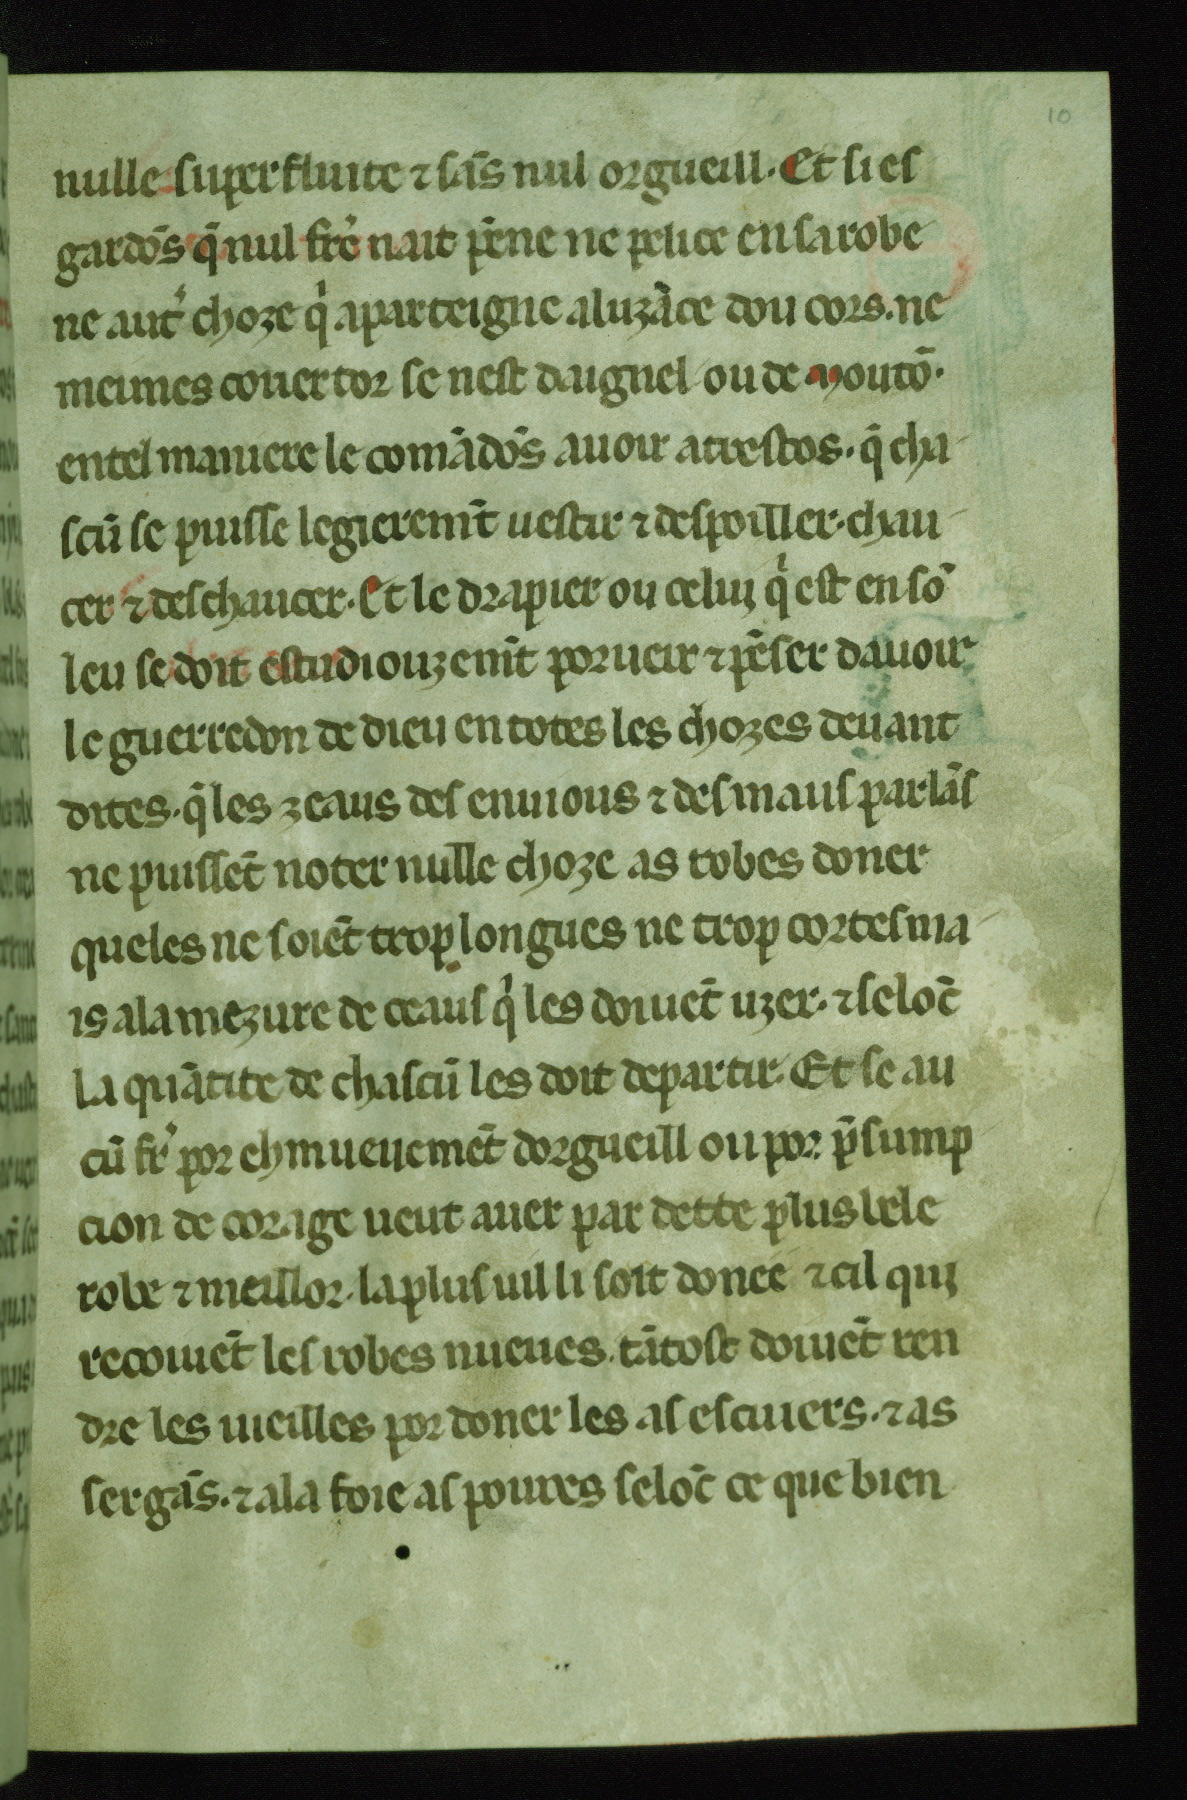 10
nulle superfluite ⁊ sãs nul orgueill. Et si es
gardõs q̃ nul fre᷑ nait pẽne ne pelice en sa robe
ne aut᷑ choze qͥ aparteigne a luzãce dou cors. ne
meimes couertor se nest daignel ou de moutõ.
en tel maniere le comãdõs auoir a trestos. q̃ cha-
scũ se puisse legieremẽt uestir ⁊ despoiller. chau-
cer ⁊ deschaucer. Et le drapier ou celuy qͥ est en sõ
leu se doit estudiouzemẽt porueir ⁊ pẽser dauoir
le guerredon de dieu en totes les chozes deuant
dites. q̃ les zeaus des enuious ⁊ des maus parlãs
ne puissẽt noter nulle choze as robes doner
queles ne soiẽt trop longues ne trop cortes ma-
is a la mezure de ceaus qͥ les doiuẽt uzer. ⁊ selõc
la quãtite de chascũ les doit departir. Et se au
cũ fr᷑ por ehmueuemẽt dorgueill ou por p̃sump
cion de corage ueut auer par dette plus bele
robe ⁊ meillor. la plus uil li soit donee ⁊ cil quy
recoiuẽt les robes nueues. tãtost doiuẽt ren
dre les uieilles por doner les as escuiers. ⁊ as
sergãs. ⁊ a la foie as poures selõc ce que bien